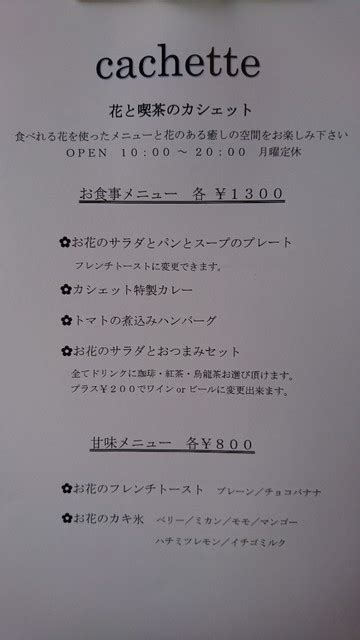 cachette
花と喫茶のカシェット
食べれる花を使ったメニューと花のある癒しの空間をお楽しみ下さい
OPEN 10:00~20:00 月曜定休
お食事メニュー 各 ¥1300
✿お花のサラダとパンとスープのプレート
フレンチトーストに変更できます。
✿カシェット特製カレー
✿トマトの煮込みハンバーグ
✿お花のサラダとおつまみセット
全てドリンクに珈琲・紅茶・烏龍茶お選び頂けます。
プラス¥200でワイン or ビールに変更出来ます。
甘味メニュー 各¥800
✿お花のフレンチトースト プレーン/チョコバナナ
✿お花のカキ氷 ベリー/ミカン/モモ/マンゴー
ハチミツレモン/イチゴミルク